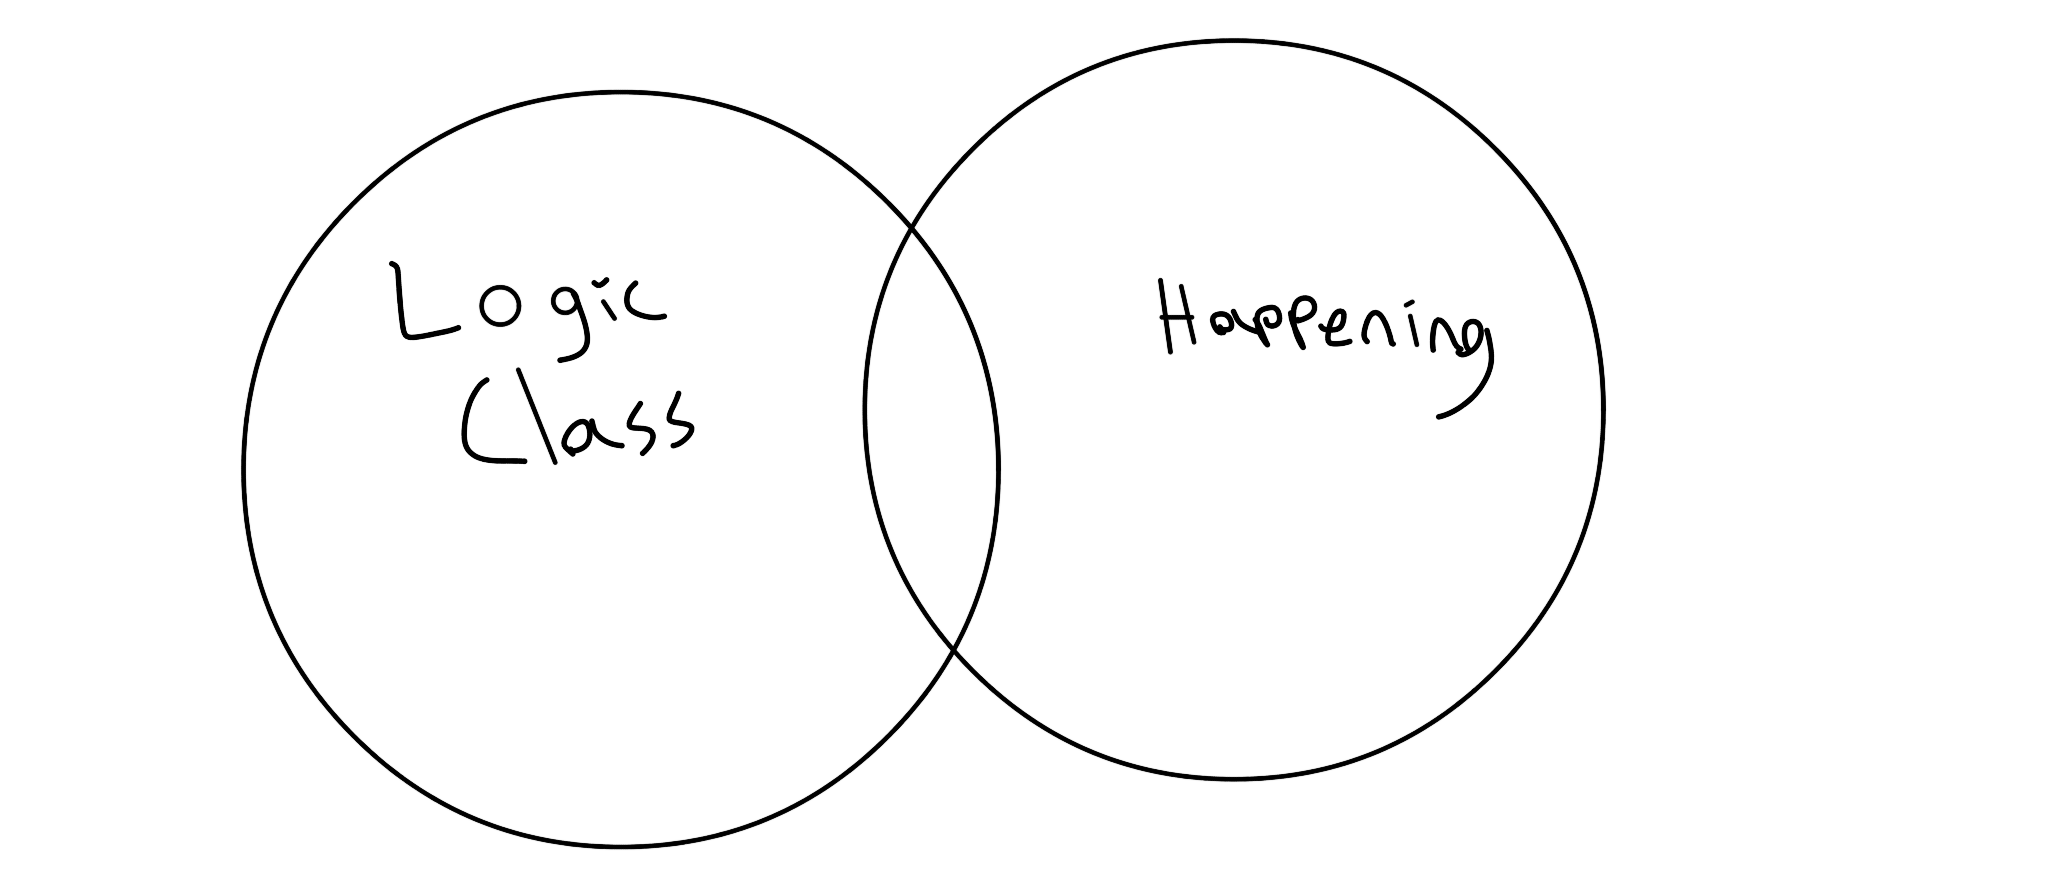 Logic
Class
Happening